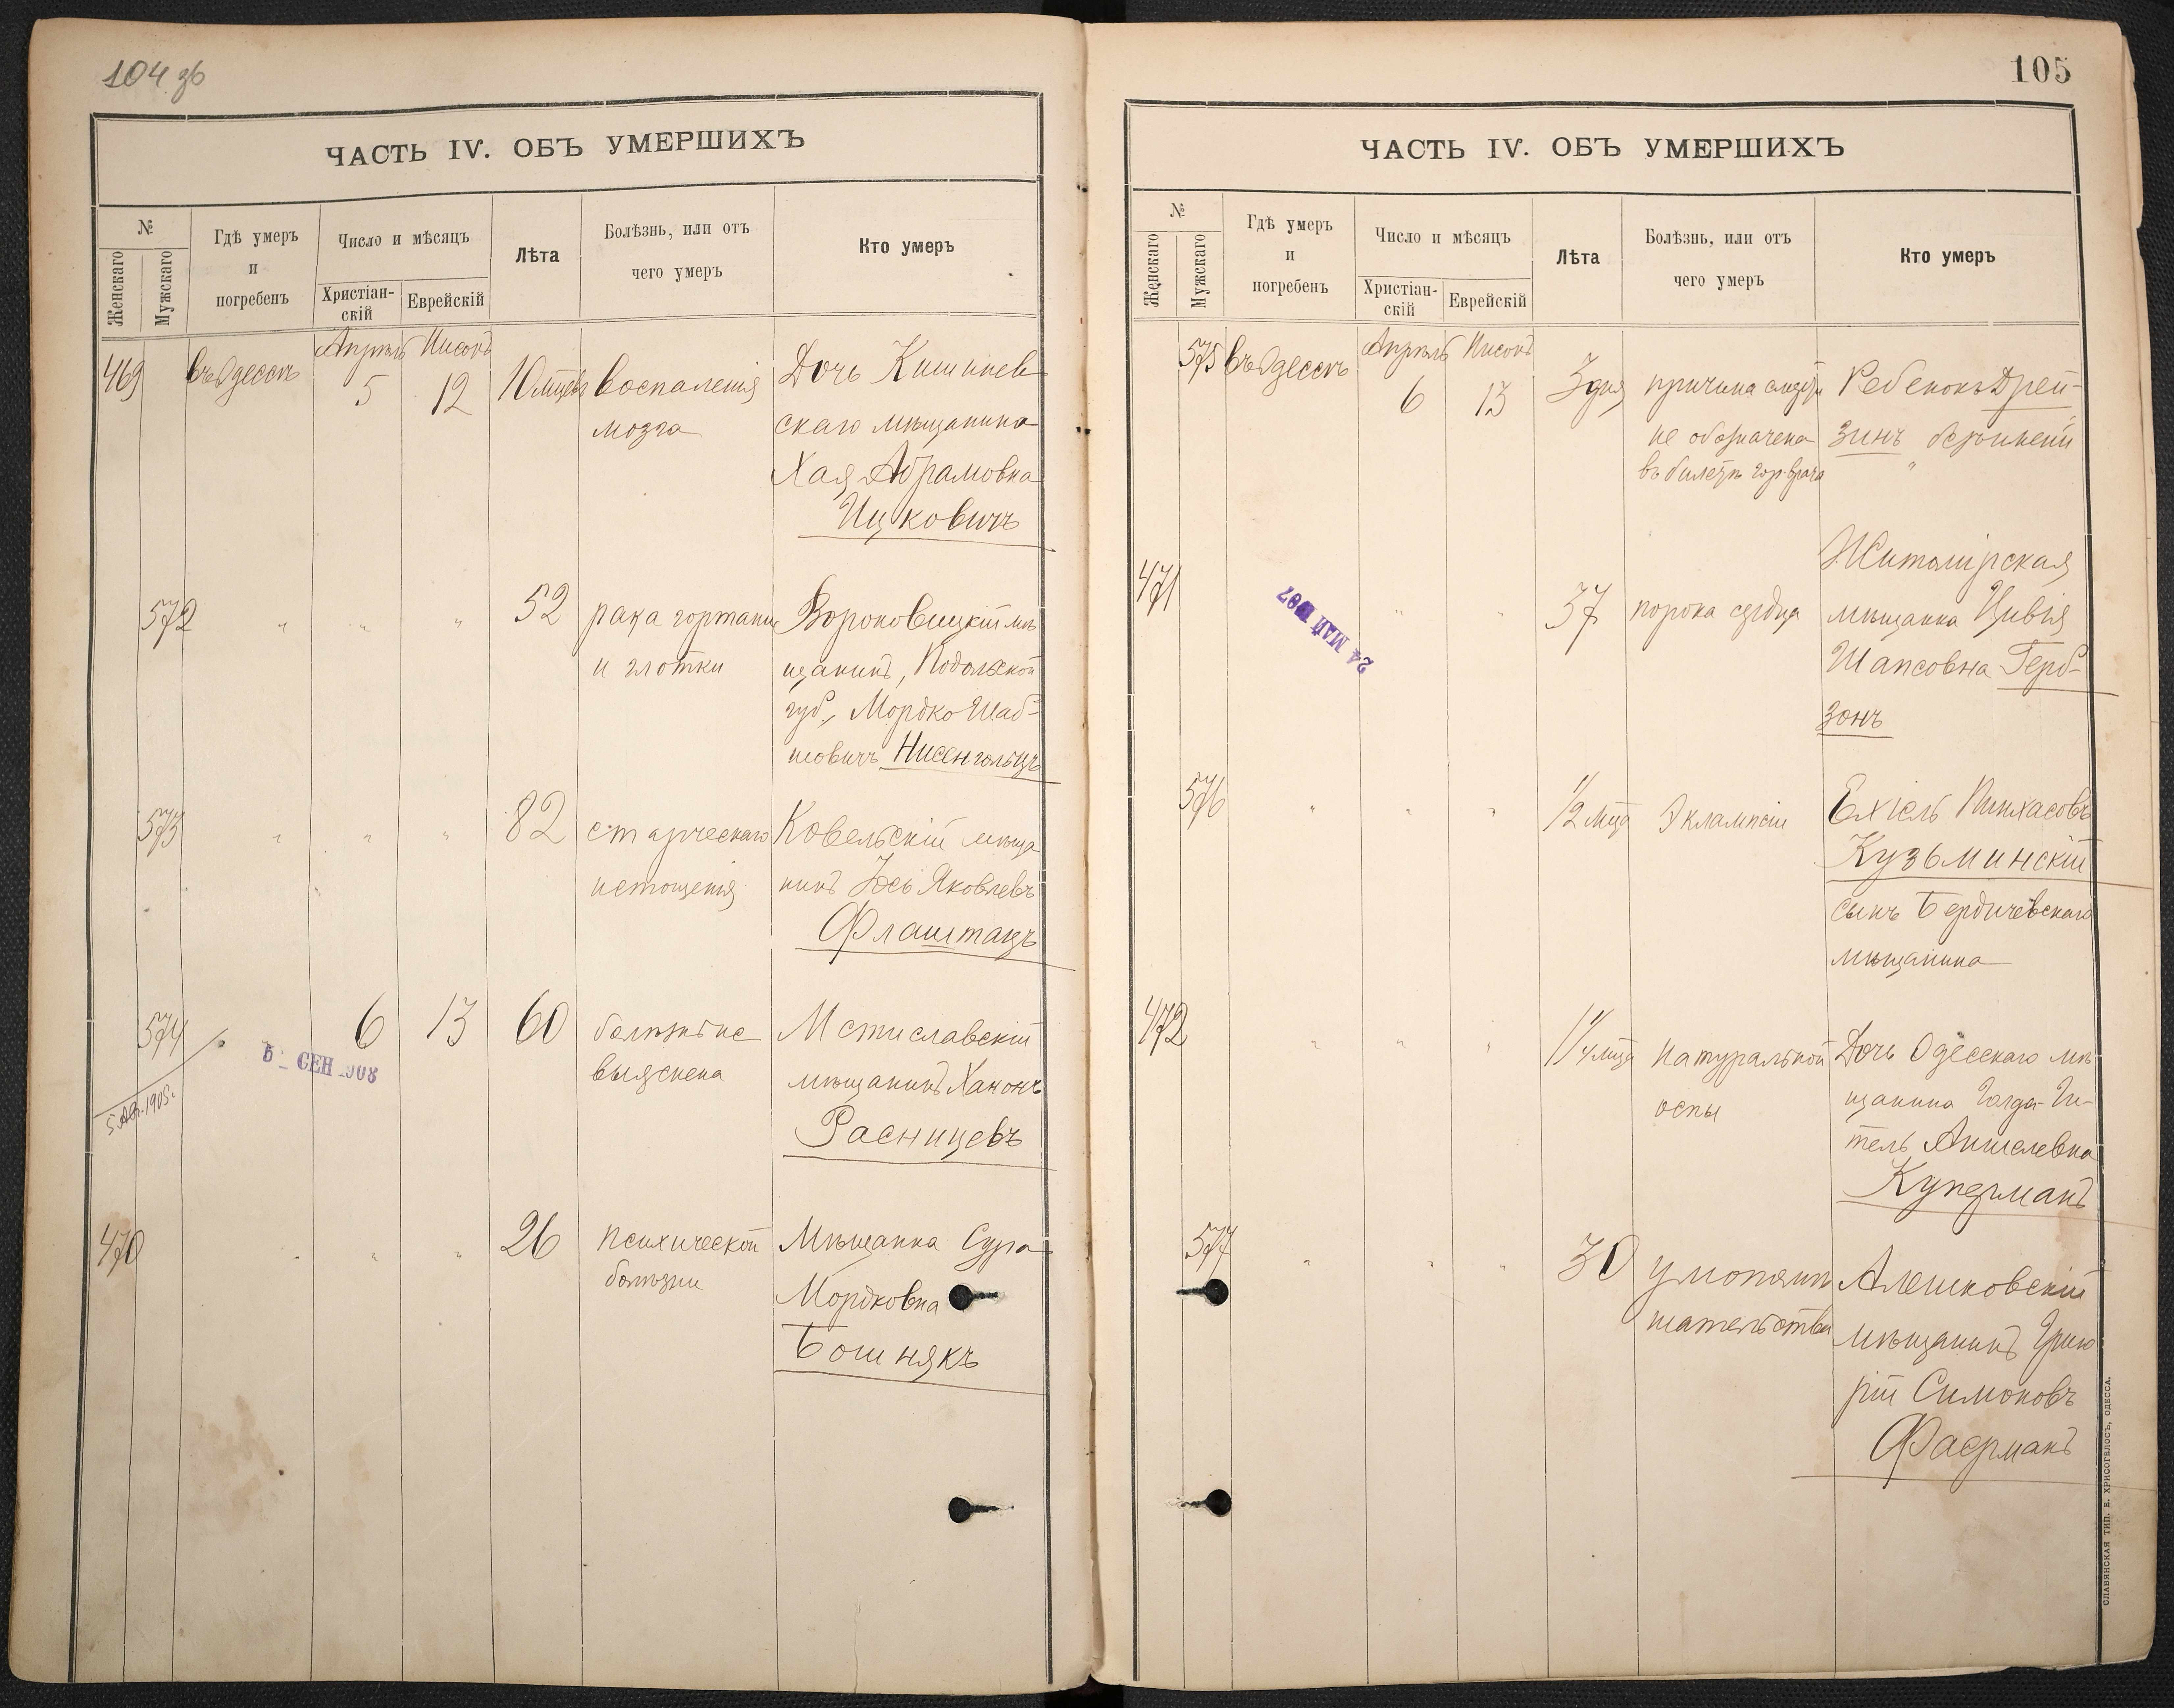 104 зв
ЧАСТЬ IV. ОБЪ УМЕРШИХЪ
№
Женскаго
Мужскаго
Гдѣ умеръ
и
погребенъ
Число и мѣсяцъ
Христіан-
скій
Еврейскій
Лѣта
Болѣзнь, или отъ
чего умеръ
Кто умеръ
469 въ Одессѣ Апрѣль 5 Нисонъ 12 10 мцевъ
воспаленія
мозга
Дочь Кишинев
скаго мѣщанина
Хая Абрамовна
Ицковичъ
572 " " " 52
рака гортани
и глотки
Вороновицкій мѣ
щанинъ, Подольской
губ., Мордко Шаб-
шовичъ Нисенгольцъ
573 " " " 82
старческаго
истощенія
Ковельскій мѣща
нинъ Іось Яковлевъ
Флаштацъ
574 " 6 13 60
болѣзнь не
выяснена
Мстиславскій
мѣщанинъ Ханонъ
Расницевъ
5 СЕН 1908
5 Ав. 1905 г.
470 " " " 26
психической
болѣзни
Мѣщанка Сура
Мордковна
Бошнякъ
105
ЧАСТЬ IV. ОБЪ УМЕРШИХЪ
№
Женскаго
Мужскаго
Гдѣ умеръ
и
погребенъ
Число и мѣсяцъ
Христіан-
скій
Еврейскій
Лѣта
Болѣзнь, или отъ
чего умеръ
Кто умеръ
575 въ Одессѣ Апрѣль 6 Нисонъ 13 3 дня
причина смерти
не обозначена
въ билетѣ гор. врача
Ребенокъ Дрей-
зинъ
471 " " 37
порока сердца
Житомірская
мѣщанка Цивія
Шапсовна Герб-
зонъ
24 МАЙ 1907
576 " " " 1/2 мца
Эклампсіи
Ехіель Пинхасовъ
Кузьминскій
сынъ Бердичевскаго
мѣщанина
472 " " " 1 1/4 мца
натуральной
оспы
Дочь Одесскаго мѣ
щанина Голда-Ги-
тель Аншелевна
Куперманъ
577 " " " 30
умопомѣ
шательства
Алешковскій
мѣщанинъ Григо
рій Симоновъ
Фаерманъ
СЛАВЯНСКАЯ ТИП. Е. ХРИСОГЕЛОСЪ, ОДЕССА.